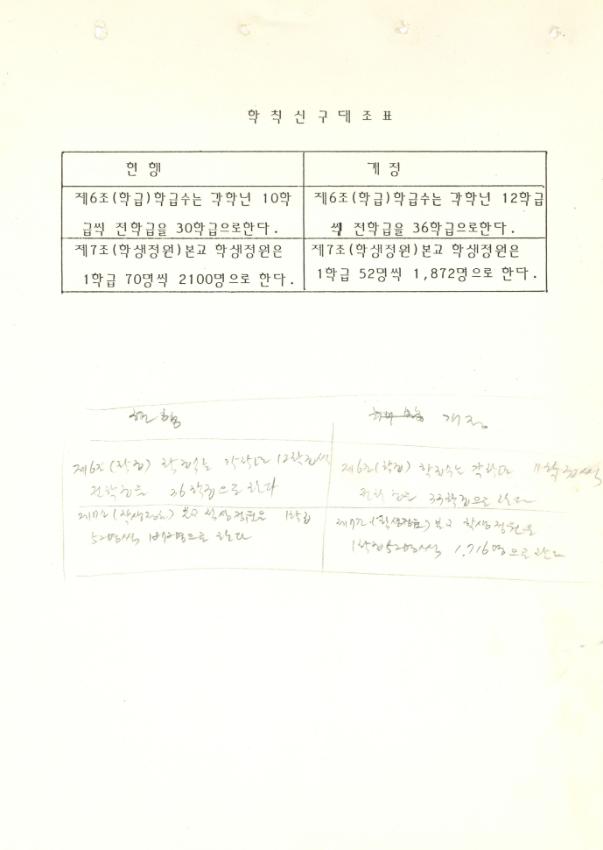 학칙신구대조표
현행
개정
제6조(학급)학급수는 각학년 10학
급씩 전학급을 30학급으로한다.
제6조(학급)학급수는 각학년 12학급
씩 전학급을 36학급으로한다.
제7조(학생정원)본교 학생정원은
1학급 70명씩 2100명으로 한다.
제7조(학생정원)본교 학생정원은
1학급 52명씩 1,872명으로 한다.
현행
개정
제6조(학급) 학급수는 각학년 12학급씩
전학급을 36학급으로 한다
제6조(학급) 학급수는 각학년 11학급씩
전학급은 33학급으로 한다
제7조(학생정원) 본교 학생정원은 1학급
52명씩 1872명으로 한다
제7조(학생정원) 본교 학생정원을
1학급52명씩 1,716명으로 한다